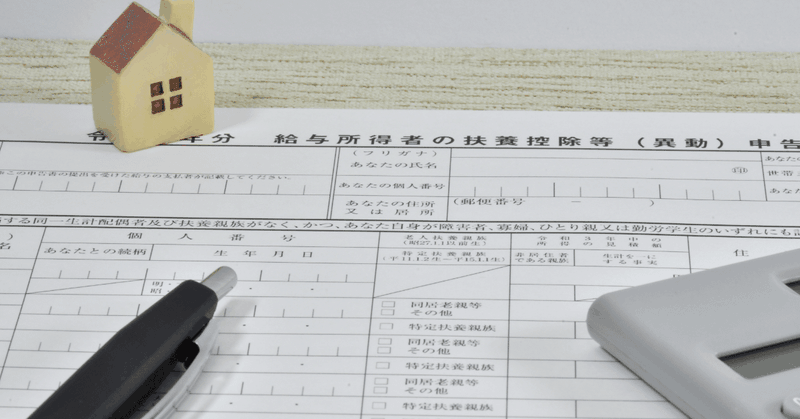 令
年分 給与所得者の扶養控除等（異動）申告
（フリガナ）
あなたの氏名
㊞
あなたの個人番号
あなたの住所
又は居所
（郵便番号 － ）
この申告書の提出を受けた給与の支払者が記載してください。
する同一生計配偶者及び扶養親族がなく、かつ、あなた自身が障害者、寡婦、ひとり親又は勤労学生のいずれにも
個人番号
あなたとの続柄
生年月日
老人扶養親族
（昭27.1.1以前生）
特定扶養親族
（平11.1.2生～平15.1.1生）
令和3年中の
所得の見積額
非居住者
である親族
生計を一に
する事実
住
明・
昭
□ 同居老親等
□ その他
□ 特定扶養親族
□ 同居老親等
□ その他
□ 特定扶養親族
□ 同居老親等
□ その他
□ 特定扶養親族